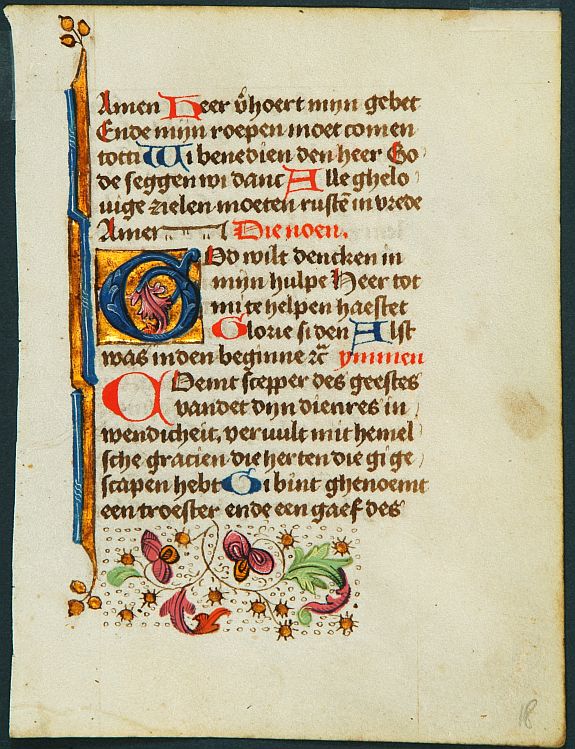 Amen Heer v̄hoert mijn gebet
Ende mijn roepen moet comen
totti Wi benedien den heer Go
de seggen wi danc Alle ghelo
uige zielen moeten rustē in vrede
Amen Die noen.
GOd wilt dencken in
mijn hulpe Heer tot
mi te helpen haestet
Glorie si den Alst
was inden beginne ⁊c ymmen
COemt scepper des geestes
vandet dijn dienres in
wendicheit, vervult mit hemel
sche gracien die herten die gi ge
scapen hebt Gi bint ghenoemt
een troester ende een gaef des
18